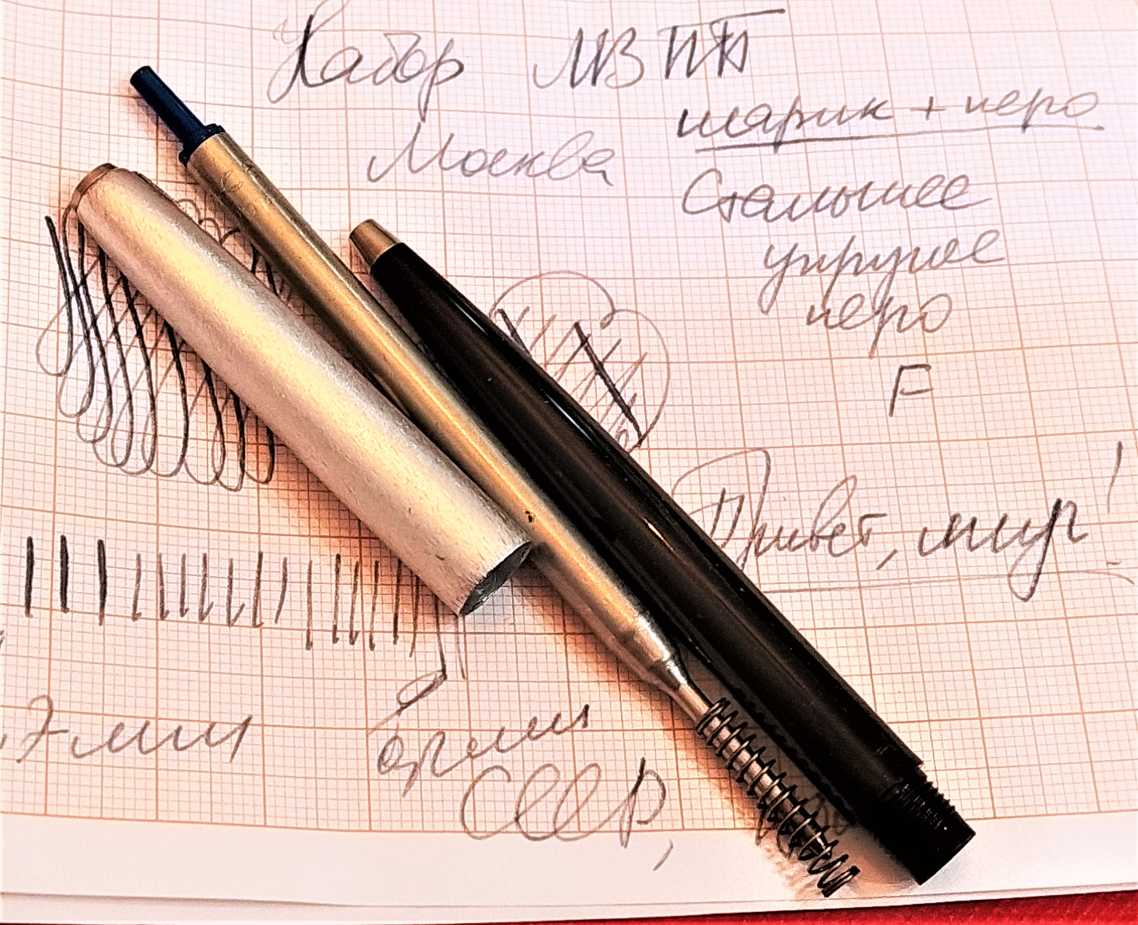 Набор МЗПП
Москва
шарик + перо
Стальное
упругое
перо
F
Привет, мир!
времен
СССР,